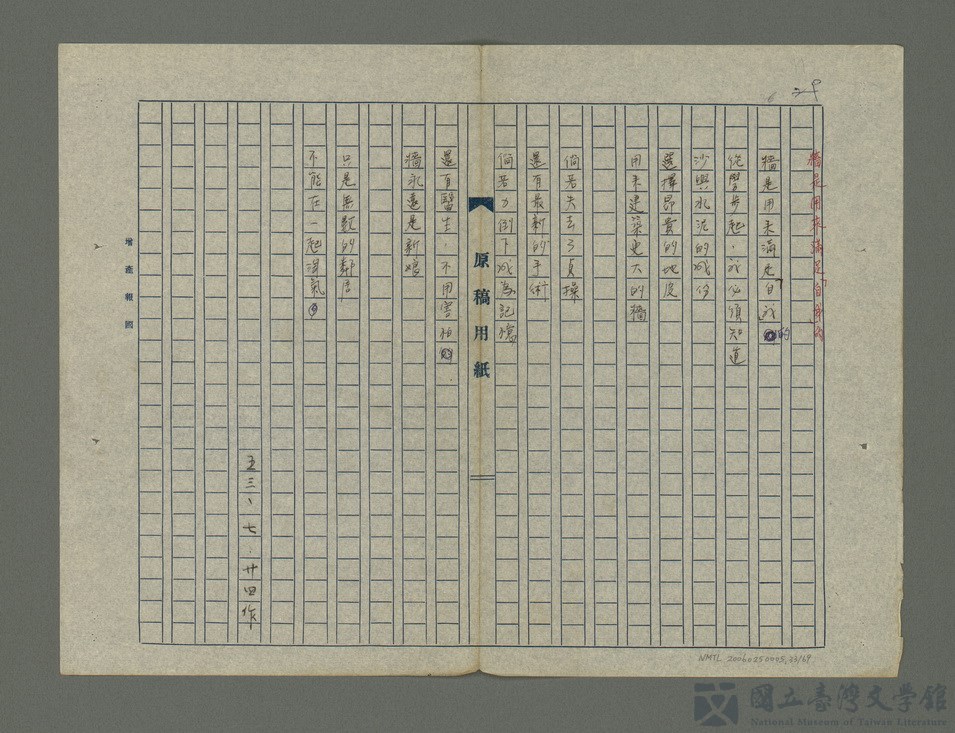 29
6
牆是用來滿足「自我」的
牆是用來滿足「自我」的
從學步起，我必須知道
沙與水泥的成份
選擇昂貴的地段
用来建築更大的牆
倘若失去了貞操
還有最新的手術
倘若力倒下成為記憶
還有醫生，不用害怕
牆永遠是新娘
只是無數的鄰居
不能在一起淘氣
五三、七.廿四作
原稿用紙
增產報國
NMTL 20060250005.23/69
國立臺灣文學館
National Museum of Taiwan Literature